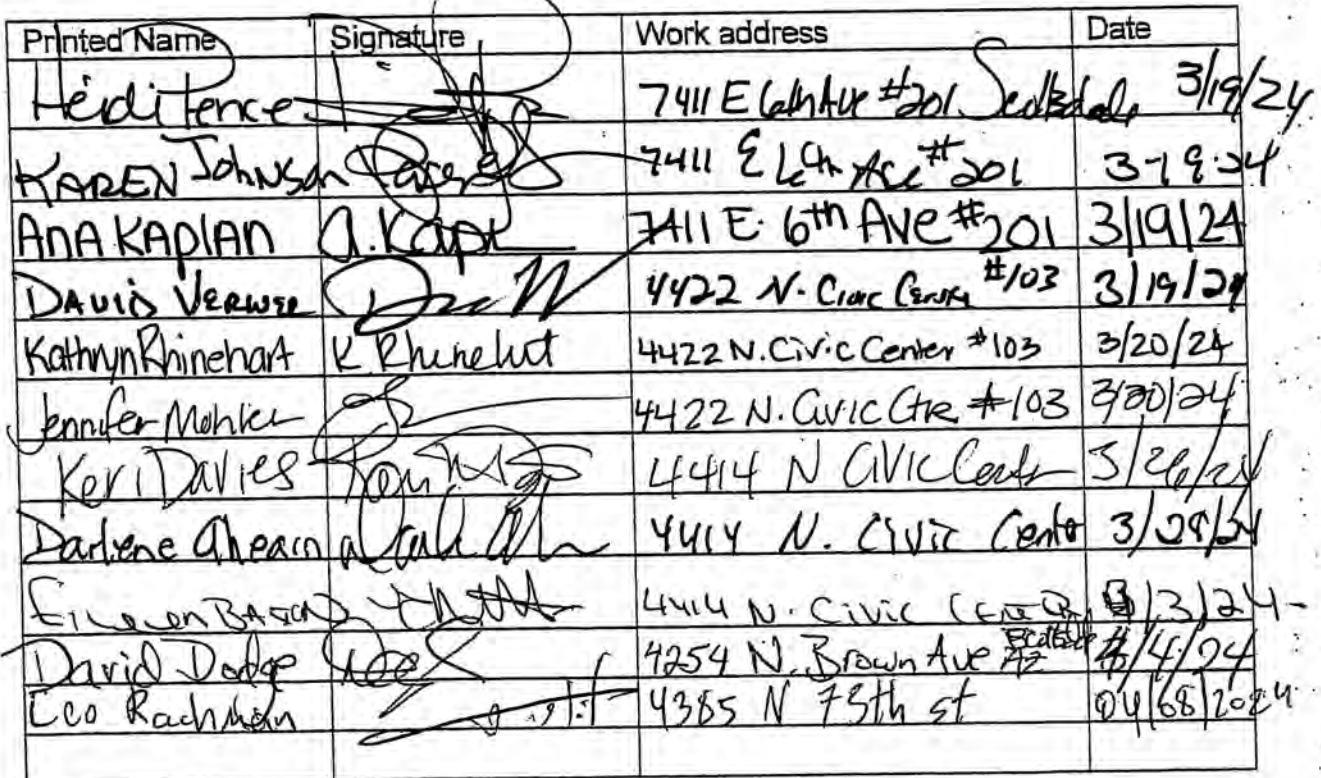 Printed Name Signature Work address Date
Heidi Pence 7411 E 6th Ave #201 Scottsdale 3/19/24
KAREN Johnson 7411 E 6th Ave #201 3-19-24
ANA KAPLAN A. Kapl 7411 E. 6th Ave #201 3/19/24
DAVID VERWEE 4422 N. Civic Center #103 3/19/24
Kathryn Rhinehart K Rhinehart 4422 N. Civic Center #103 3/20/24
Jennifer Mohler 4422 N. Civic Ctr #103 3/20/24
Keri Davies 4414 N Civic Center 3/26/24
Darlene Ahearn 4414 N. Civic Cente 3/28/24
4414 N. Civic /3/24
David Dodge 4254 N. Brown Ave AZ 4/4/24
Leo Rachman 4385 N 73th st 04/08/2024